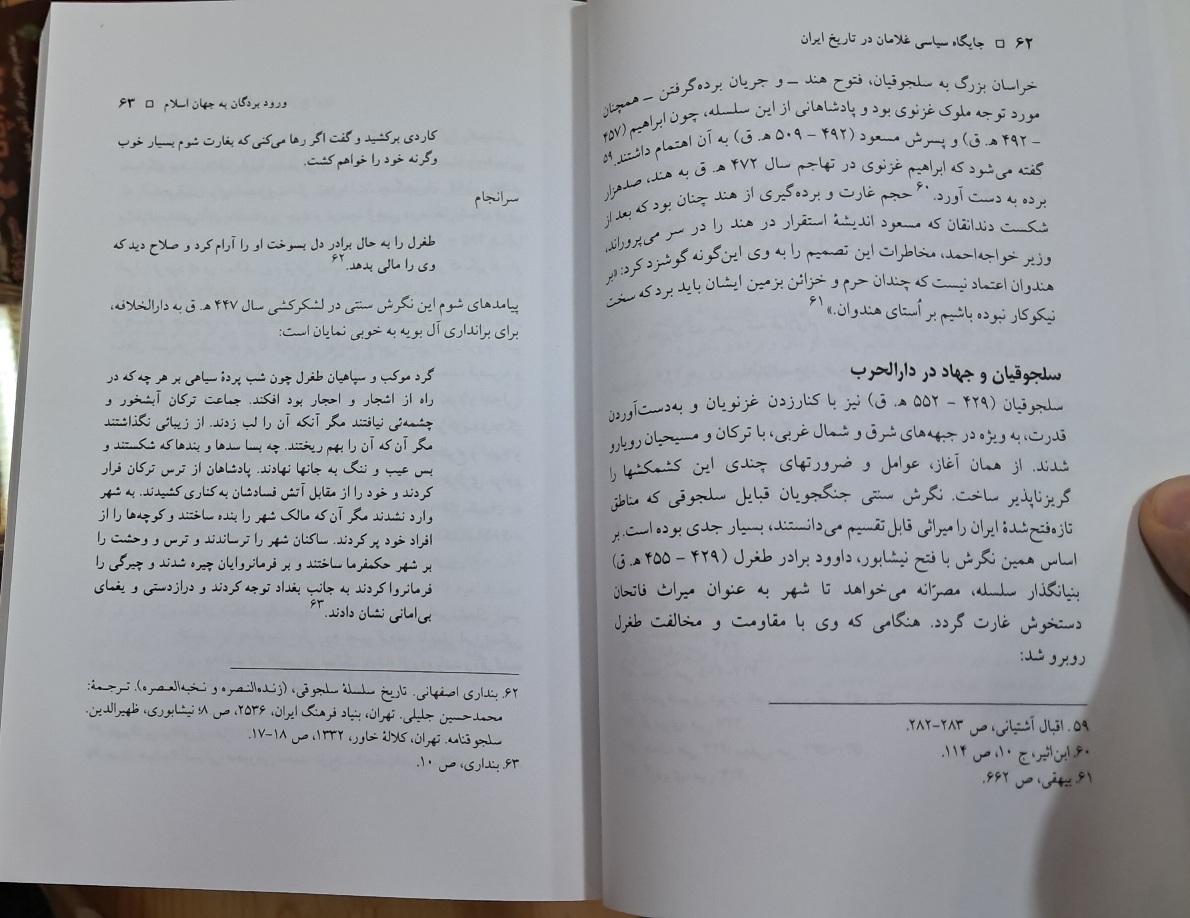 ۶۲ □ جایگاه سیاسی غلامان در تاریخ ایران
خراسان بزرگ به سلجوقیان، فتوح هند ــ و جریان برده‌گرفتن ــ همچنان
مورد توجه ملوک غزنوی بود و پادشاهانی از این سلسله، چون ابراهیم (۴۵۷
- ۴۹۲ هـ. ق) و پسرش مسعود (۴۹۲ - ۵۰۹ هـ. ق) به آن اهتمام داشتند.۵۹
گفته می‌شود که ابراهیم غزنوی در تهاجم سال ۴۷۲ هـ. ق به هند، صدهزار
برده به دست آورد.۶۰ حجم غارت و برده‌گیری از هند چنان بود که بعد از
شکست دندانقان که مسعود اندیشهٔ استقرار در هند را در سر می‌پروراند،
وزیر خواجه‌احمد، مخاطرات این تصمیم را به وی این‌گونه گوشزد کرد: «بر
هندوان اعتماد نیست که چندان حرم و خزائن بزمین ایشان باید برد که سخت
نیکوکار نبوده باشیم بر اُستای هندوان.»۶۱
سلجوقیان و جهاد در دارالحرب
سلجوقیان (۴۲۹ - ۵۵۲ هـ. ق) نیز با کنارزدن غزنویان و به‌دست‌آوردن
قدرت، به ویژه در جبهه‌های شرق و شمال غربی، با ترکان و مسیحیان رویارو
شدند. از همان آغاز، عوامل و ضرورتهای چندی این کشمکشها را
گریزناپذیر ساخت. نگرش سنتی جنگجویان قبایل سلجوقی که مناطق
تازه‌فتح‌شدهٔ ایران را میراثی قابل تقسیم می‌دانستند، بسیار جدی بوده است. بر
اساس همین نگرش با فتح نیشابور، داوود برادر طغرل (۴۲۹ - ۴۵۵ هـ. ق)
بنیانگذار سلسله، مصرّانه می‌خواهد تا شهر به عنوان میراث فاتحان
دستخوش غارت گردد. هنگامی که وی با مقاومت و مخالفت طغرل
روبرو شد:
۵۹. اقبال آشتیانی، ص ۲۸۳-۲۸۲.
۶۰. ابن‌اثیر، ج ۱۰، ص ۱۱۴.
۶۱. بیهقی، ص ۶۶۲.
ورود بردگان به جهان اسلام □ ۶۳
کاردی برکشید و گفت اگر رها می‌کنی که بغارت شوم بسیار خوب
وگرنه خود را خواهم کشت.
سرانجام
طغرل را به حال برادر دل بسوخت او را آرام کرد و صلاح دید که
وی را مالی بدهد.۶۲
پیامدهای شوم این نگرش سنتی در لشکرکشی سال ۴۴۷ هـ. ق به دارالخلافه،
برای براندازی آل بویه به خوبی نمایان است:
گرد موکب و سپاهیان طغرل چون شب پردهٔ سیاهی بر هر چه که در
راه از اشجار و احجار بود افکند. جماعت ترکان آبشخور و
چشمه‌ئی نیافتند مگر آنکه آن را لب زدند. از زیبائی نگذاشتند
مگر آن‌که آن را بهم ریختند. چه بسا سدها و بندها که شکستند و
بس عیب و ننگ به جانها نهادند. پادشاهان از ترس ترکان فرار
کردند و خود را از مقابل آتش فسادشان به‌کناری کشیدند. به شهر
وارد نشدند مگر آن‌که مالک شهر را بنده ساختند و کوچه‌ها را از
افراد خود پر کردند. ساکنان شهر را ترساندند و ترس و وحشت را
بر شهر حکمفرما ساختند و بر فرمانروایان چیره شدند و چیرگی را
فرمانروا کردند به جانب بغداد توجه کردند و درازدستی و یغمای
بی‌امانی نشان دادند.۶۳
۶۲. بنداری اصفهانی. تاریخ سلسلهٔ سلجوقی، (زنده‌النصره و نخبه‌العصره). ترجمهٔ:
محمدحسین جلیلی. تهران، بنیاد فرهنگ ایران، ۲۵۳۶، ص ۸؛ نیشابوری، ظهیرالدین.
سلجوقنامه. تهران، کلالهٔ خاور، ۱۳۳۲، ص ۱۸-۱۷.
۶۳. بنداری، ص ۱۰.